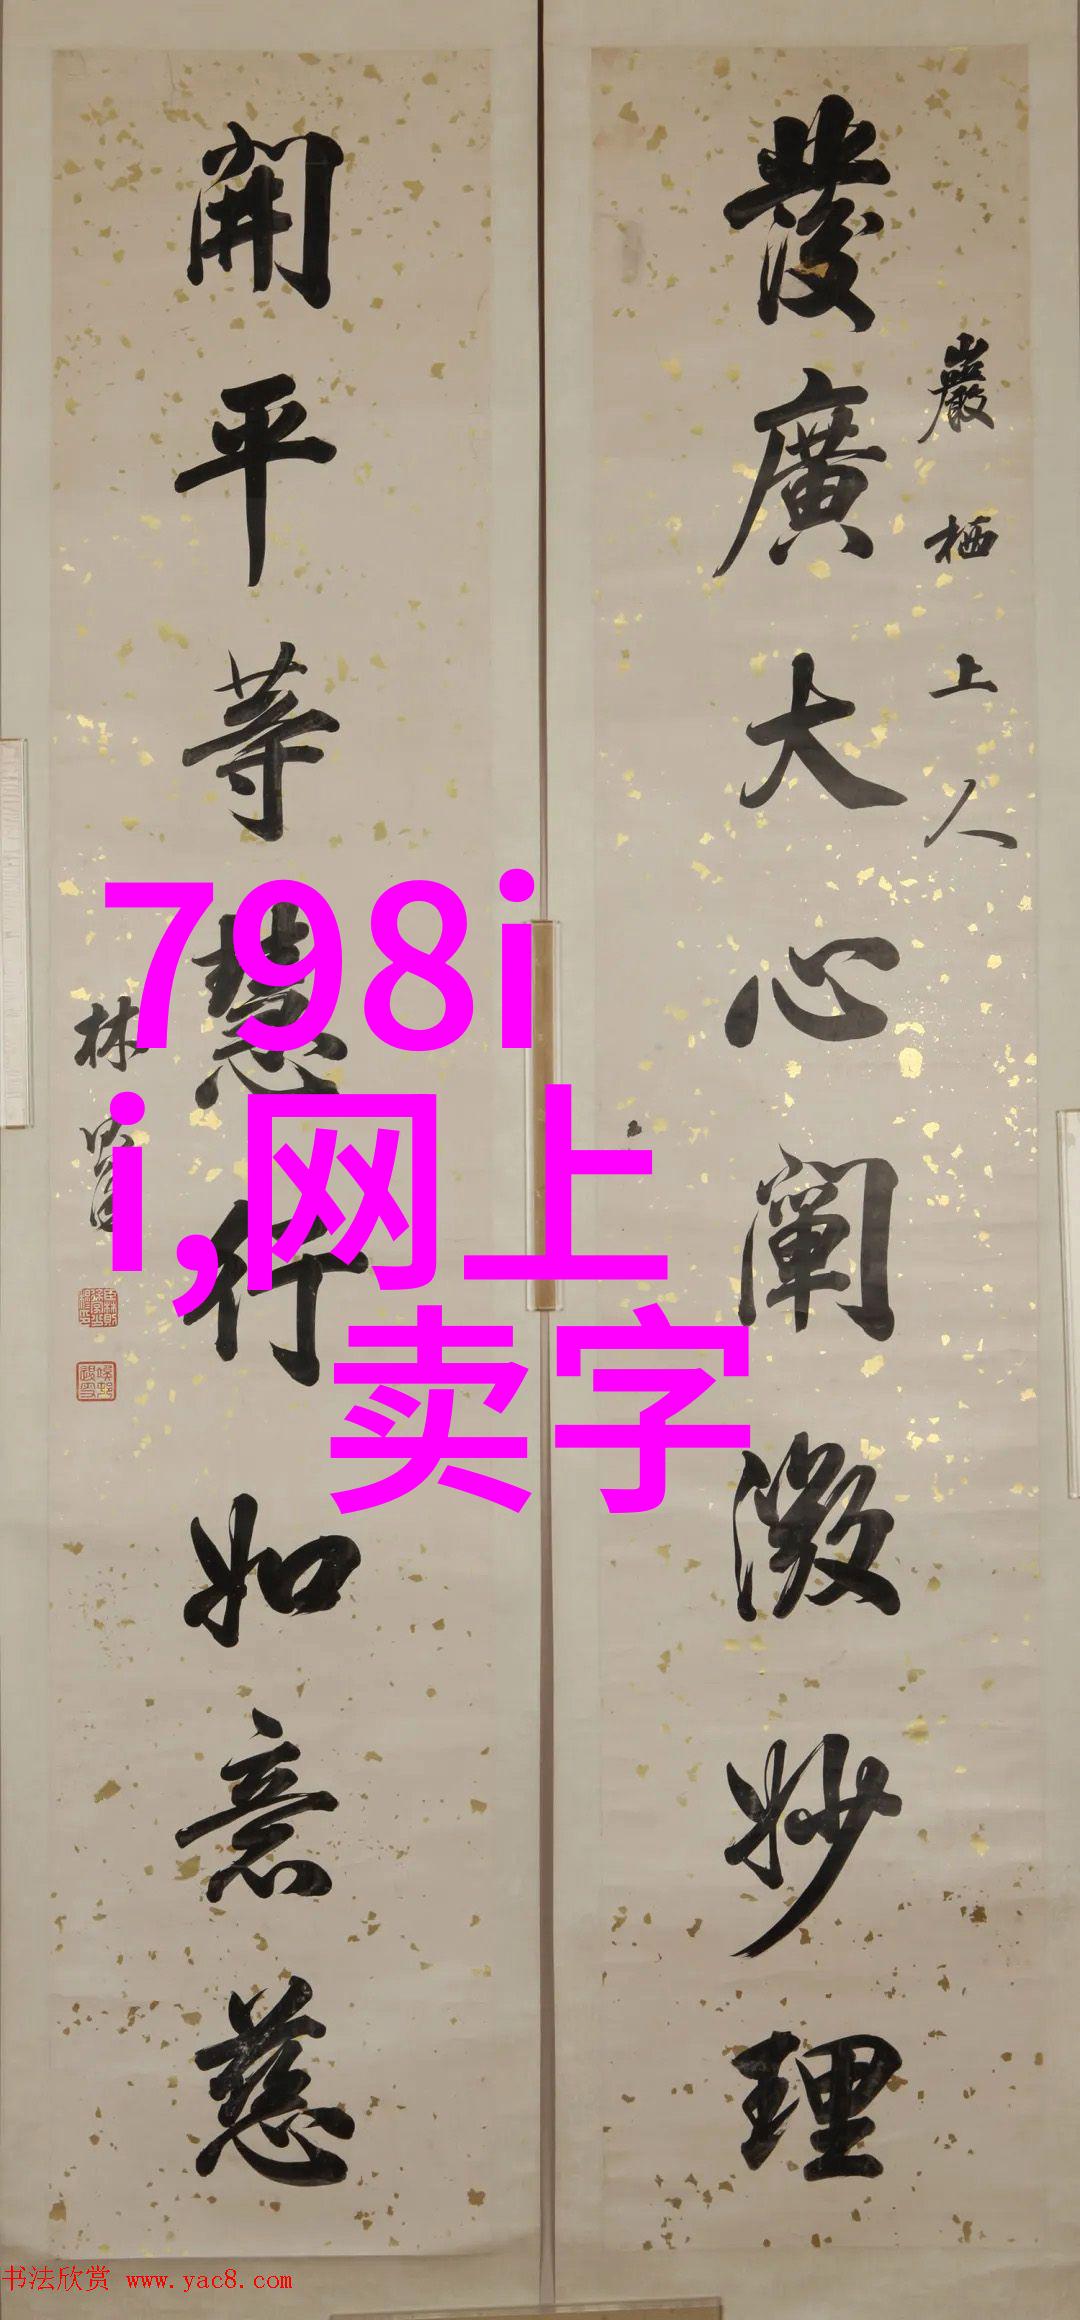 發廣大心闡微妙理
巖栖上人
開平等慧行如意慈
林
798i
i,网上
卖字
书法欣赏 www.yac8.com